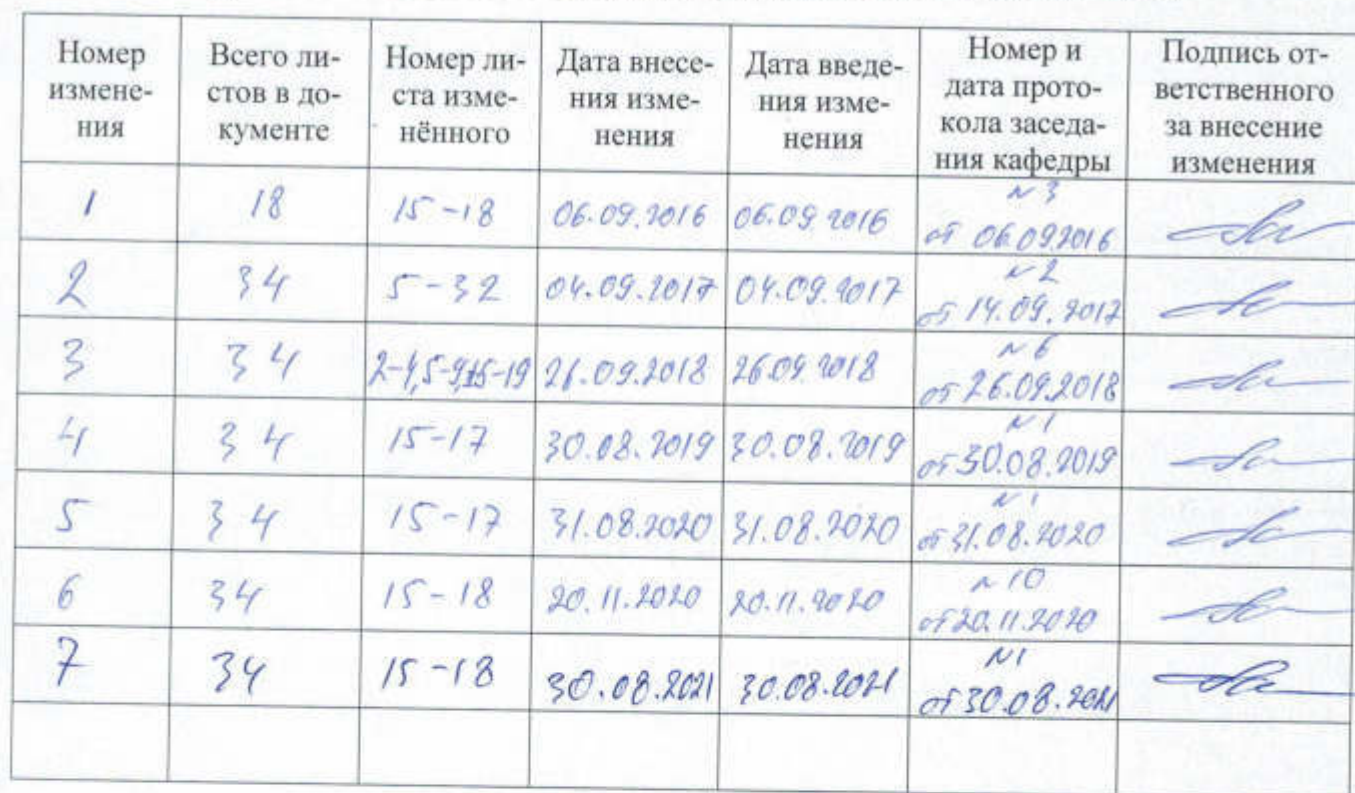 Номер измене- ния
Всего ли- стов в до- кументе
Номер ли- ста изме- нённого
Дата внесе- ния изме- нения
Дата введе- ния изме- нения
Номер и дата прото- кола заседа- ния кафедры
Подпись от- ветственного за внесение изменения
1 18 15-18 06.09.2016 06.09.2016 №3
от 06.09.2016
2 34 5-32 04.09.2017 04.09.2017 №2
от 14.09.2017
3 34 2-4,5-9,15-19 26.09.2018 26.09.2018 №6
от 26.09.2018
4 34 15-17 30.08.2019 30.08.2019 №1
от 30.08.2019
5 34 15-17 31.08.2020 31.08.2020 №1
от 31.08.2020
6 34 15-18 20.11.2020 20.11.2020 №10
от 20.11.2020
7 34 15-18 30.08.2021 30.08.2021 №1
от 30.08.2021